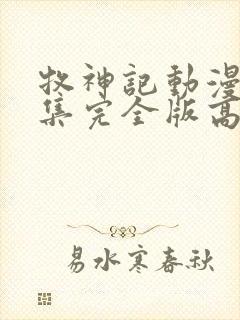 牧神記動漫
集完全版高
易水寒春秋